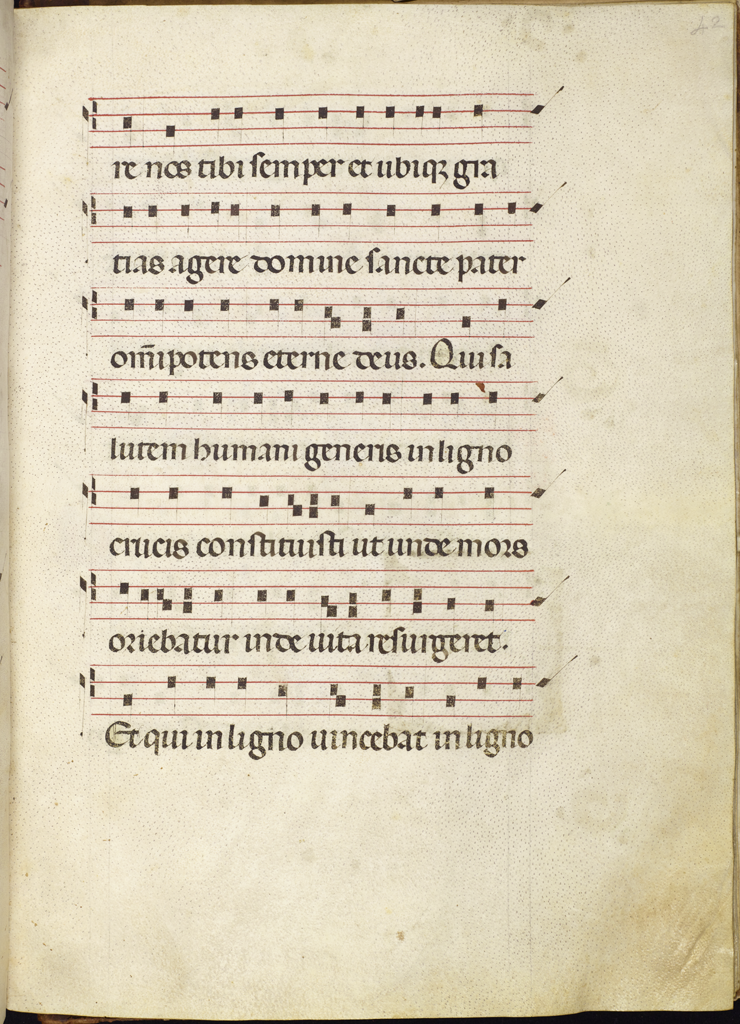 42
re nos tibi semper et ubiqꝫ gra
tias agere domine sancte pater
om̅ipotens eterne deus. Qui sa
lutem humani generis in ligno
crucis constituisti ut unde mors
oriebatur inde uita resurgeret.
Et qui in ligno uincebat in ligno